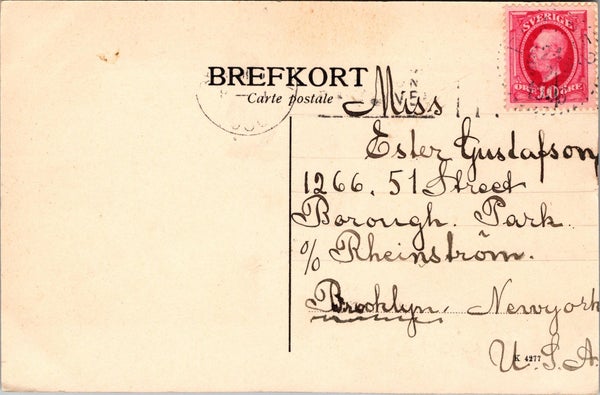 SVERIGE
10
ÖRE ÖRE
BREFKORT
Carte postale
Miss
Ester Gustafson
1266. 51 Street
Borough. Park
% Rheinström.
Brooklyn. Newyork
U.S.A.
K 4277